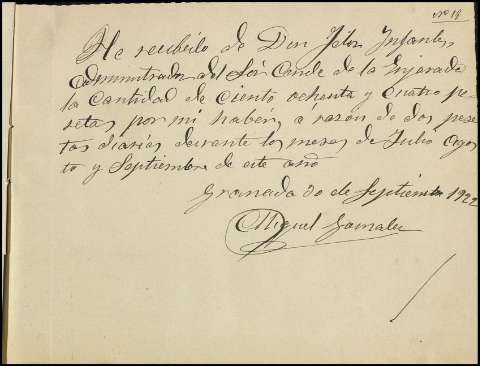 nº 18
He recibido de Don Infantes,
administrador del Sór Conde de la
la cantidad de ciento ochenta y cuatro pe-
setas por mi haber, a razón de dos pese-
tas diarias durante los meses de Julio Agos-
to y Septiembre de este año
Granada 30 de Septiembre 1922
Miguel